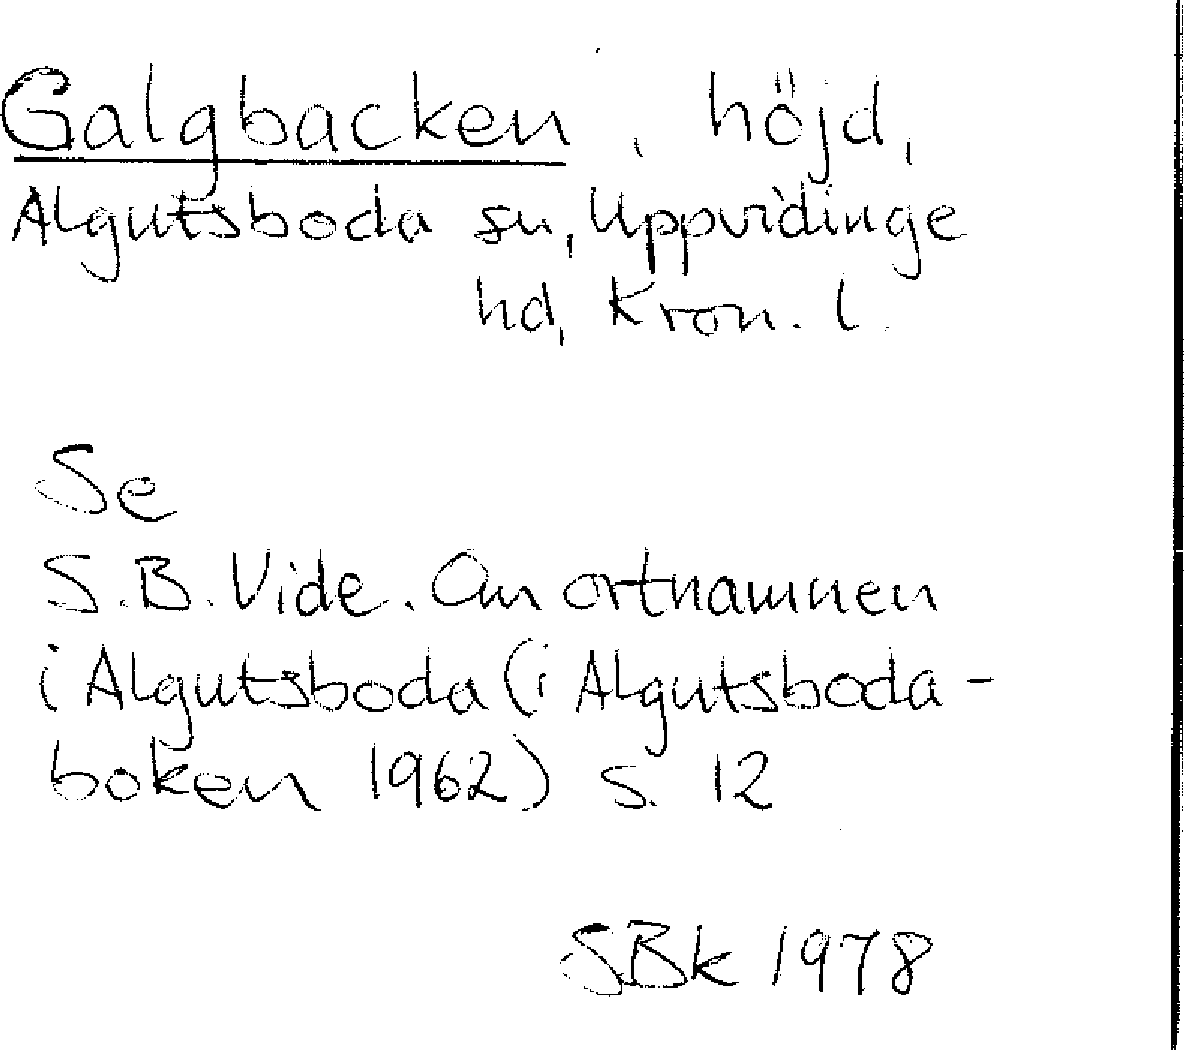 Galgbacken, höjd,
Algutsboda sn, Uppvidinge
hd, Kron. l.
Se
S.B. Vide. Om ortnamnen
i Algutsboda (i Algutsboda-
boken 1962) s. 12
SBk 1978